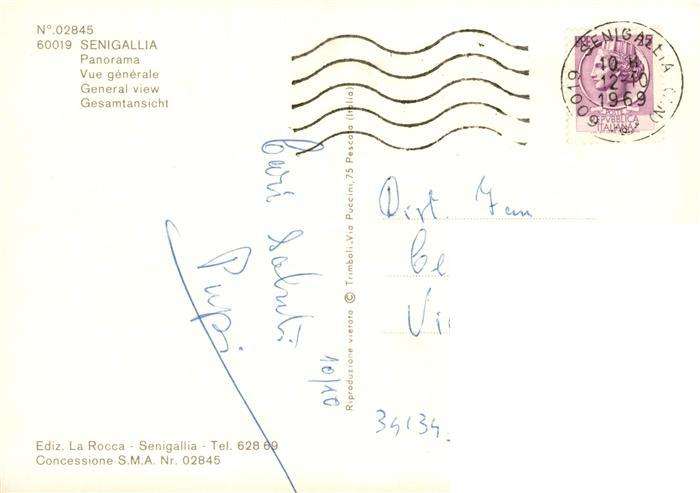 N°.02845
60019 SENIGALLIA
Panorama
Vue générale
General view
Gesamtansicht
SENIGALLIA (AN)
10 H
12-10
1969
60019
REPUBBLICA
ITALIANA
Cari Saluti
Pupi
10/10
Reproduzione vietata © Trimboli, Via Puccini, 75 Pescara (Italia)
Dist. Fam
Ce
Vi
34134
Ediz. La Rocca - Senigallia - Tel. 628 69
Concessione S.M.A. Nr. 02845